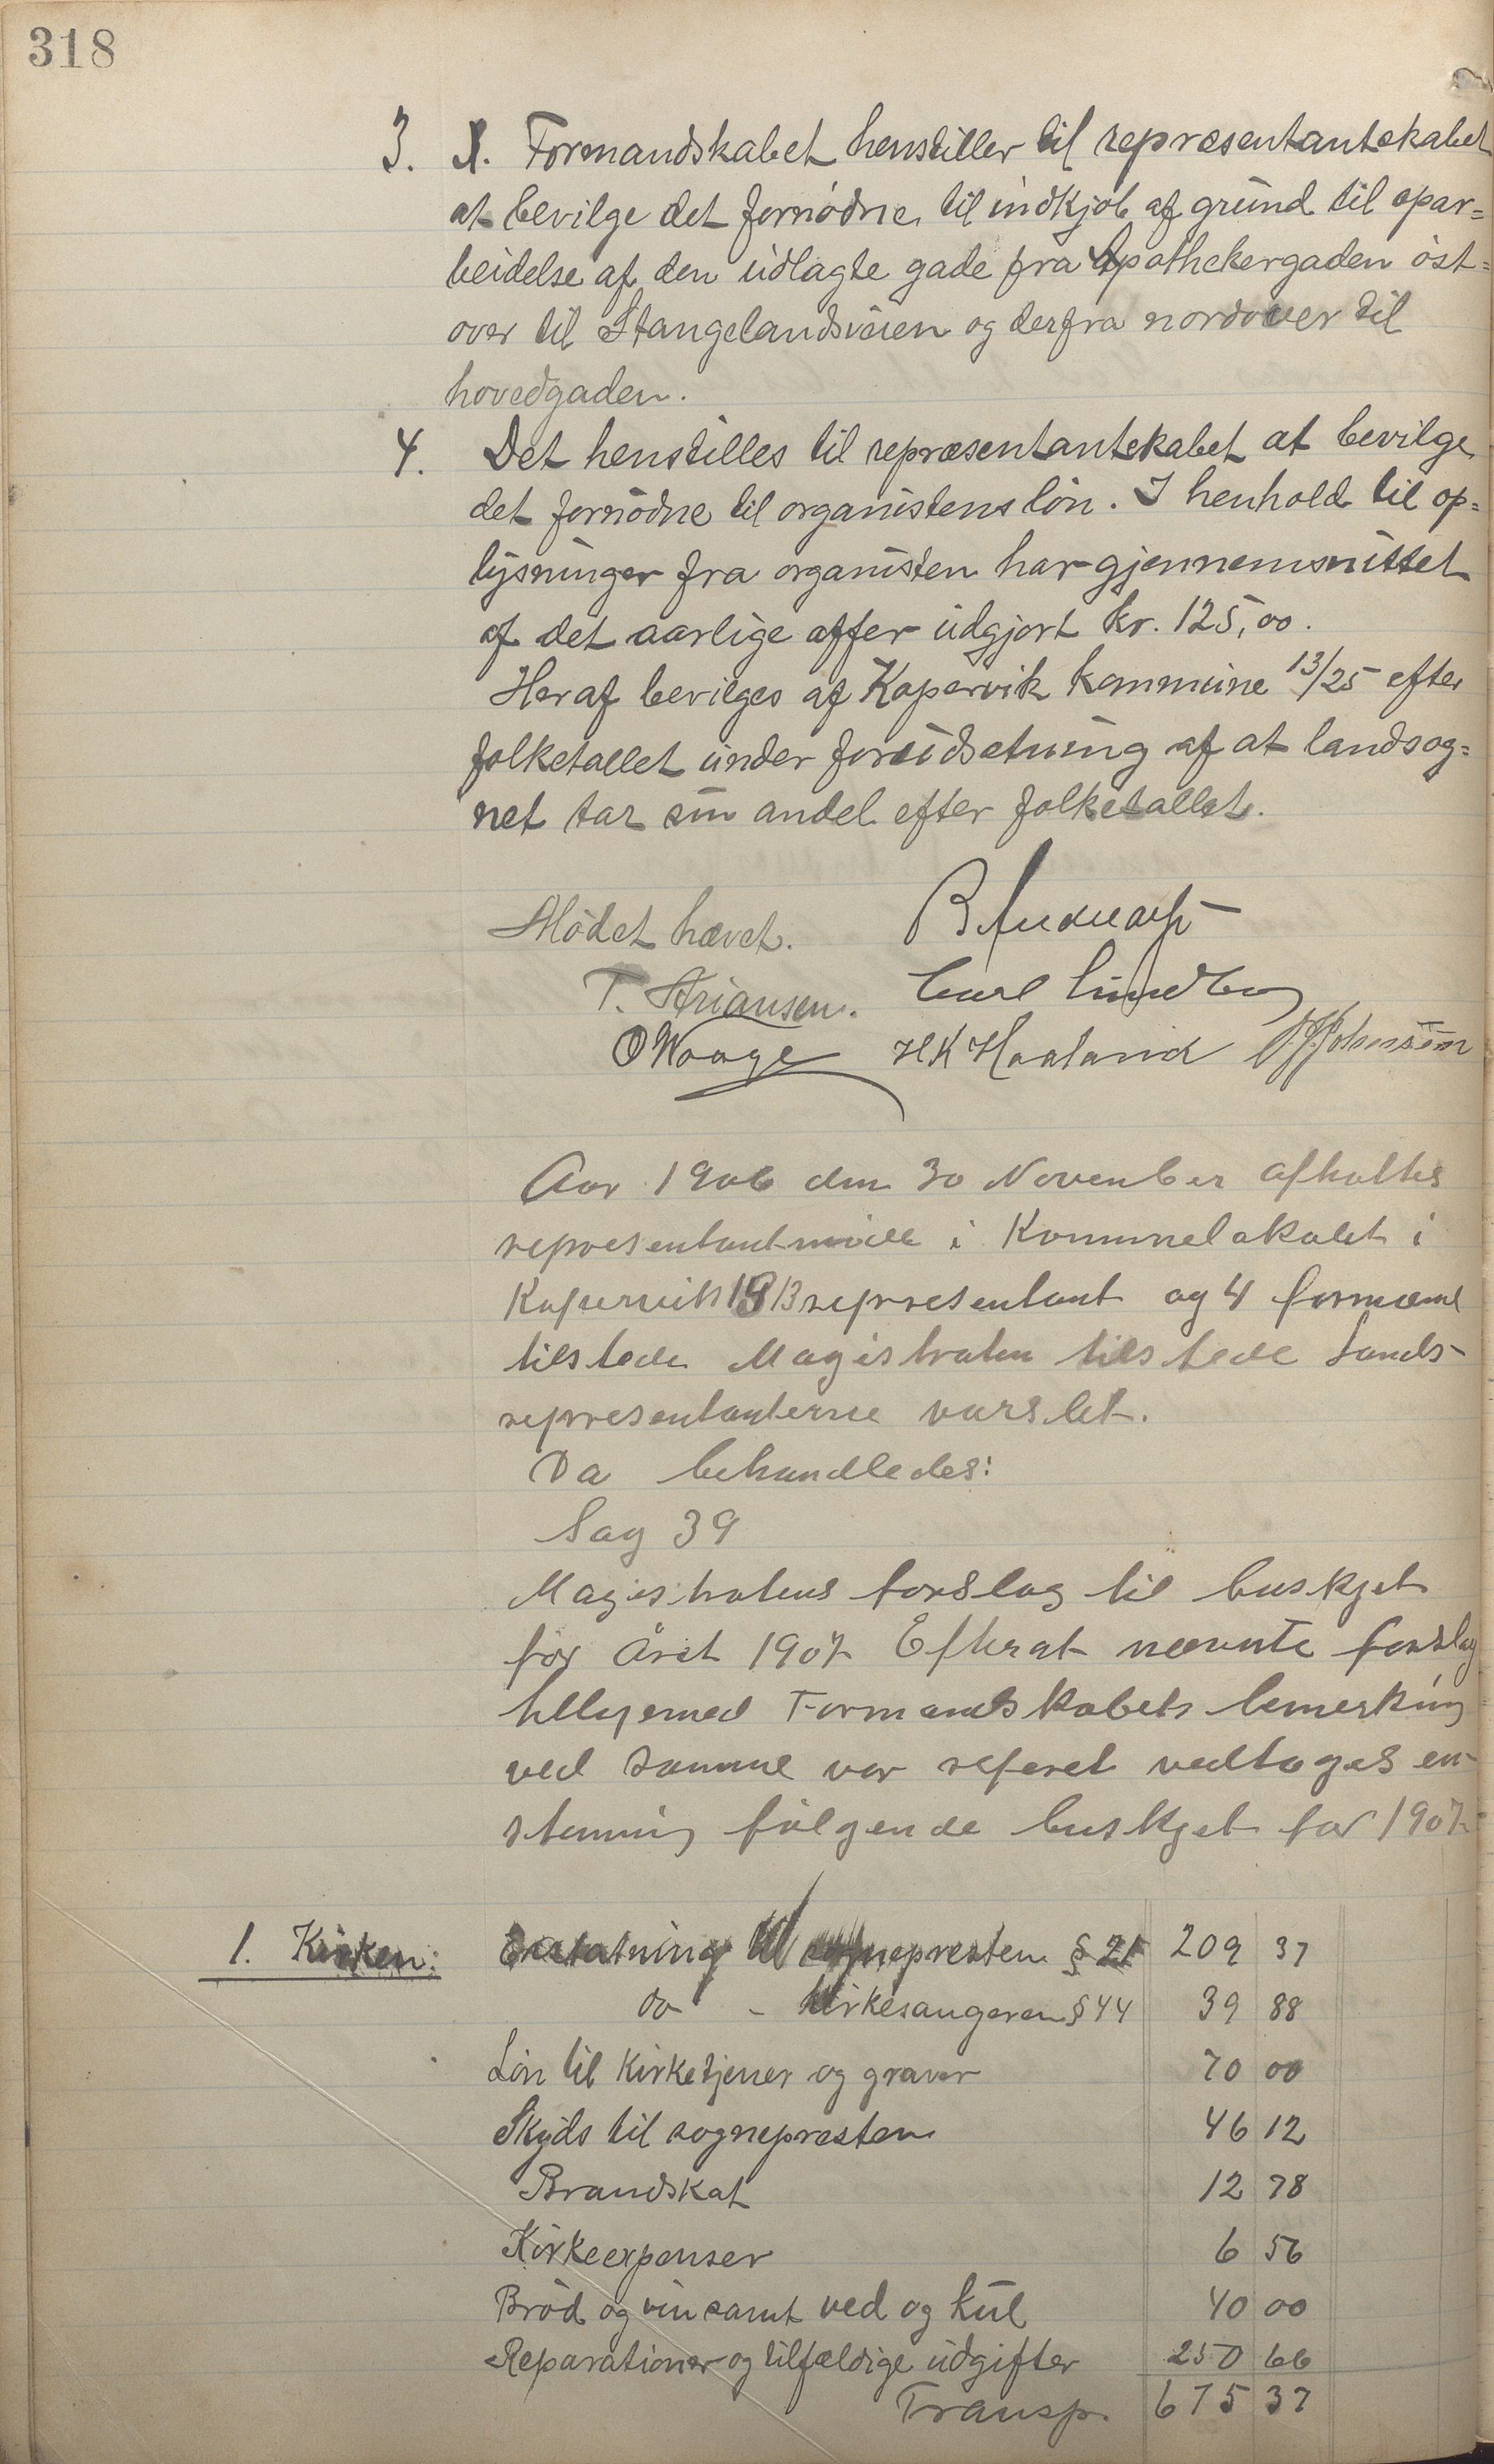 318
3. 1. Formandskabet henstiller til repræsentantskabet
at bevilge det fornødne til indkjøb af grund til opar=
beidelse af den udlagte gade fra Apothekergaden øst=
over til Stangelandsveien og derfra nordover til
hovedgaden.
4. Det henstilles til repræsentantskabet at bevilge
det fornødne til organistens løn. I henhold til op=
lysninger fra organisten har gjennemsnittet
af det aarlige offer udgjort kr. 125,00.
Heraf bevilges af Kopervik kommune 13/25 efter
folketallet under forudsætning af at landsog=
net tar sin andel efter folketallet.
Mødet hævet.
T. Ariansen. Carl Lindberg
O Waage HK Haaland
Aar 1906 den 30 November afholtes
representantmøde i Kommunelokalet i
Kopervik 13 representant og 4 formænd
tilstede Magistraten tilstede Lands-
representanterne varslet.
Da behandledes:
Sag 39
Magistratens forslag til buskjet
for Året 1907 Efterat nævnte forslag
tilligemed Formandskabets bemerkning
ved samme var referet vedtoges en-
stemmig følgende buskjet for 1907
1. Kirken: Erstatning til sognepresten § 21 209 37
do - kirkesangeren § 44 39 88
Løn til kirketjener og graver 70 00
Skyds til sognepresten 46 12
Brandskat 12 78
Kirkeexpenser 6 56
Brød og vin samt ved og kul 40 00
Reparationer og tilfældige udgifter 250 66
Transp. 675 37